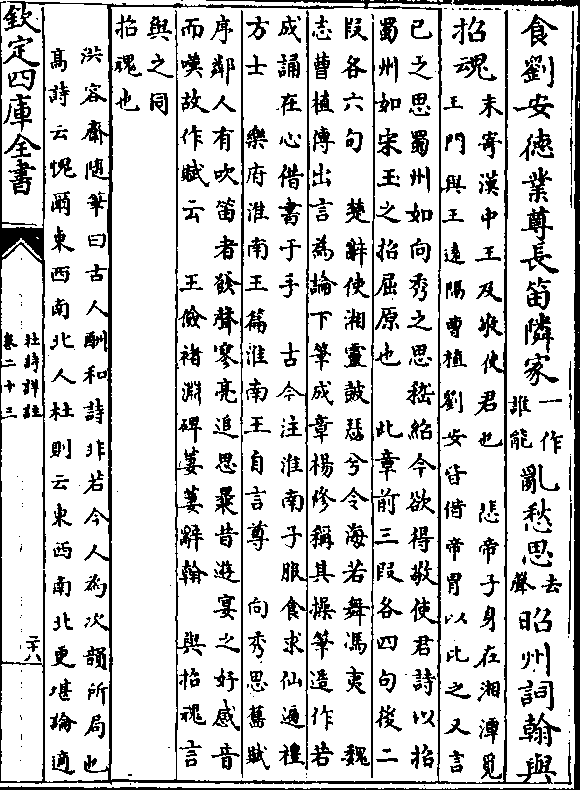 食劉安徳業尊長笛隣家一作誰能亂愁思去聲昭州詞翰與
招魂末寄漢中王及敬使君也 悲帝子身在湘潭覓王門與王遠隔曹植劉安皆借帝胄以比之又言
已之思蜀州如向秀之思嵇紹今欲得敬使君詩以招
蜀州如宋玉之招屈原也 此章前三段各四句後二
段各六句 楚辭使湘靈鼓瑟兮令海若舞馮夷 魏
志曹植傳出言為論下筆成章楊修稱其操筆造作若
成誦在心借書于手 古今注淮南子服食求仙遍禮
方士 樂府淮南王篇淮南王自言尊 向秀思舊賦
序鄰人有吹笛者發聲寥亮追思曩昔遊宴之好感音
而嘆故作賦云 王儉褚淵碑萋萋辭翰 與招魂言
與之同
招魂也
洪容齋隨筆曰古人酬和詩非若今人為次韻所局也
高詩云愧爾東西南北人杜則云東西南北更堪論適
欽定四庫全書
杜詩詳註
卷二十三
二十八